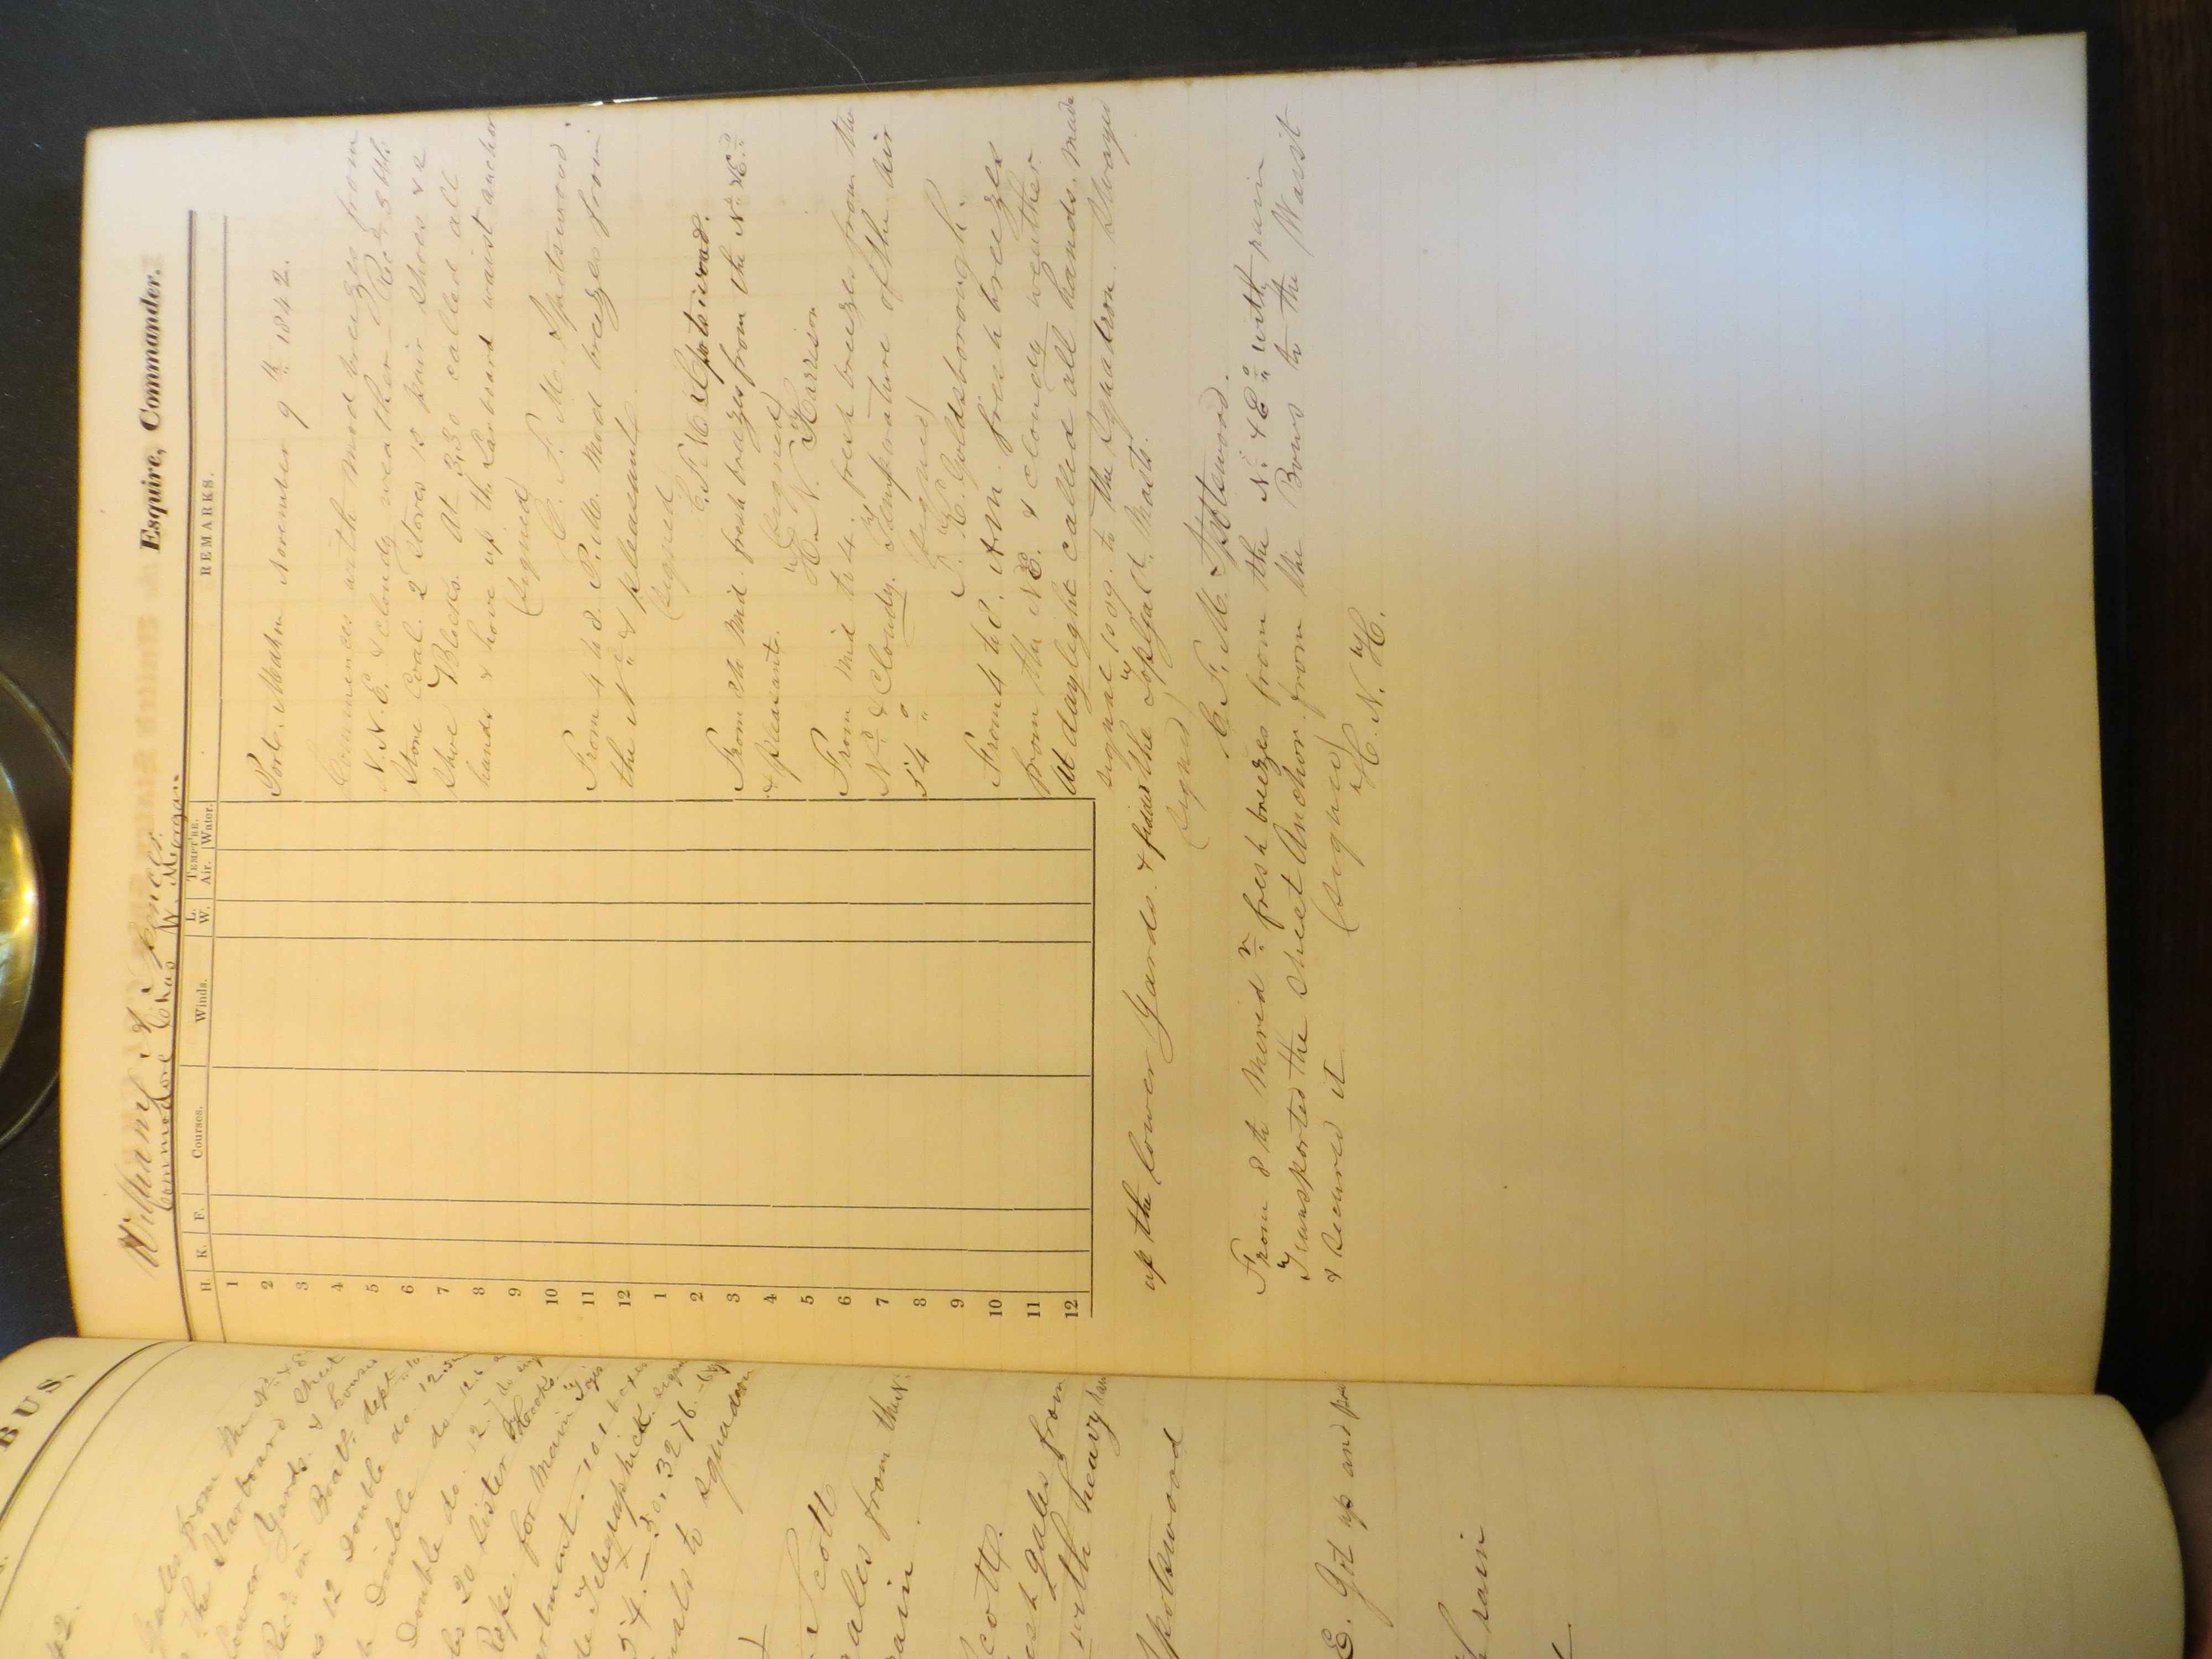 William T. Spencer Esquire, Commander.
Commodore Chas W. Morgan
H. K. F. Courses. Winds. L. W. TEMPT'RE. Air. Water. REMARKS.
1
2
3
4
5
6
7
8
9
10
11
12
1
2
3
4
5
6
7
8
9
10
11
12
Port Mahon November 9th 1842.
Commences with Mod breezes from
N.N.E. & cloudy weather - Recd 5 bbls
Stone Coal. 2 Stoves 15 pair Shoes & 2
Shoe Blocks. At 3,30 called all
hands & hove up the Larboard waist anchor
(signed)
C. F. M. Spotswood.
From 4 to 8. P.M. Mod breezes from
the Nd & pleasant.
(signed)
C. F. M. Spotswood.
From 8 to Mid. fresh breezes from the Nd & Ed
& pleasant.
(signed)
H. N. Harrison
From Mid to 4. fresh breezes from the
Nd & Cloudy. Temperature of the air
54°
(signed)
J. R. Goldsborough.
From 4 to 8. A.M. fresh breezes
from the NE. & cloudy weather
At daylight called all hands. made
signal 1009. to the Squadron. Swayed
up the lower Yards. & fidded the TopGallt Masts.
(signed)
C. F. M. Spotswood.
From 8 to Meridn fresh breezes from the Nd & Ed with rain
Transported the Sheet Anchor from the Bows to the Waist
& secured it
(signed)
H. N. H.
BUS,
42.
gales from the Nd & E
the Starboard Sheet
lower Yards. & hous
Recd in Boats. dept
12 Double do. 12
Double do 12
Double do. 12.
20 Sister Hooks
Rope. for Main
101 boxes
Telegraphick. sign
54. — 50, 3276.
to squadron
Scott
gales from the N.
rain.
Scott.
gales from
with heavy
Spotswood
E. Got up and
rain